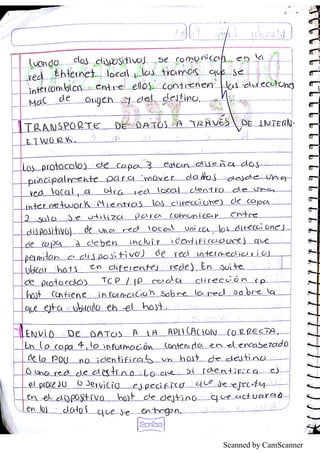 Cuando dos dispositivos se comunican en la
red Ethernet local, las tramas que se
intercambian entre ellos contienen las direcciones
Mac de origen y del destino.
TRANSPORTE DE DATOS A TRAVÉS DE INTERN-
ETWORK.
Los protocolos de capa 3 estan diseña dos
principalmente para mover datos desde una
red local, a otra red local dentro de una
internetwork Mientras las direcciones de capa
2 solo se utiliza para comunicar entre
dispositivos de una red local unica, las direcciones
de capa 3 deben incluir identificadores que
permitan a dispositivos de red intermediarios
ubicar hots en diferentes redes, En suite
de protocolos TCP / IP cada dirección ip
host contiene información sobre la red sobre la
que esta ubicado en el host.
ENVIO DE DATOS A LA APLICACION CORRECTA.
En la capa 4, la información contenida en el encabezado
de la PDU no identifica un host de destino
o una red de destino Lo que si identifica es
el proceso o servicio especifico que se ejecuta
en el dispositivo host de destino que actuara
en los datos que se entregan.
Scribe
Scanned by CamScanner